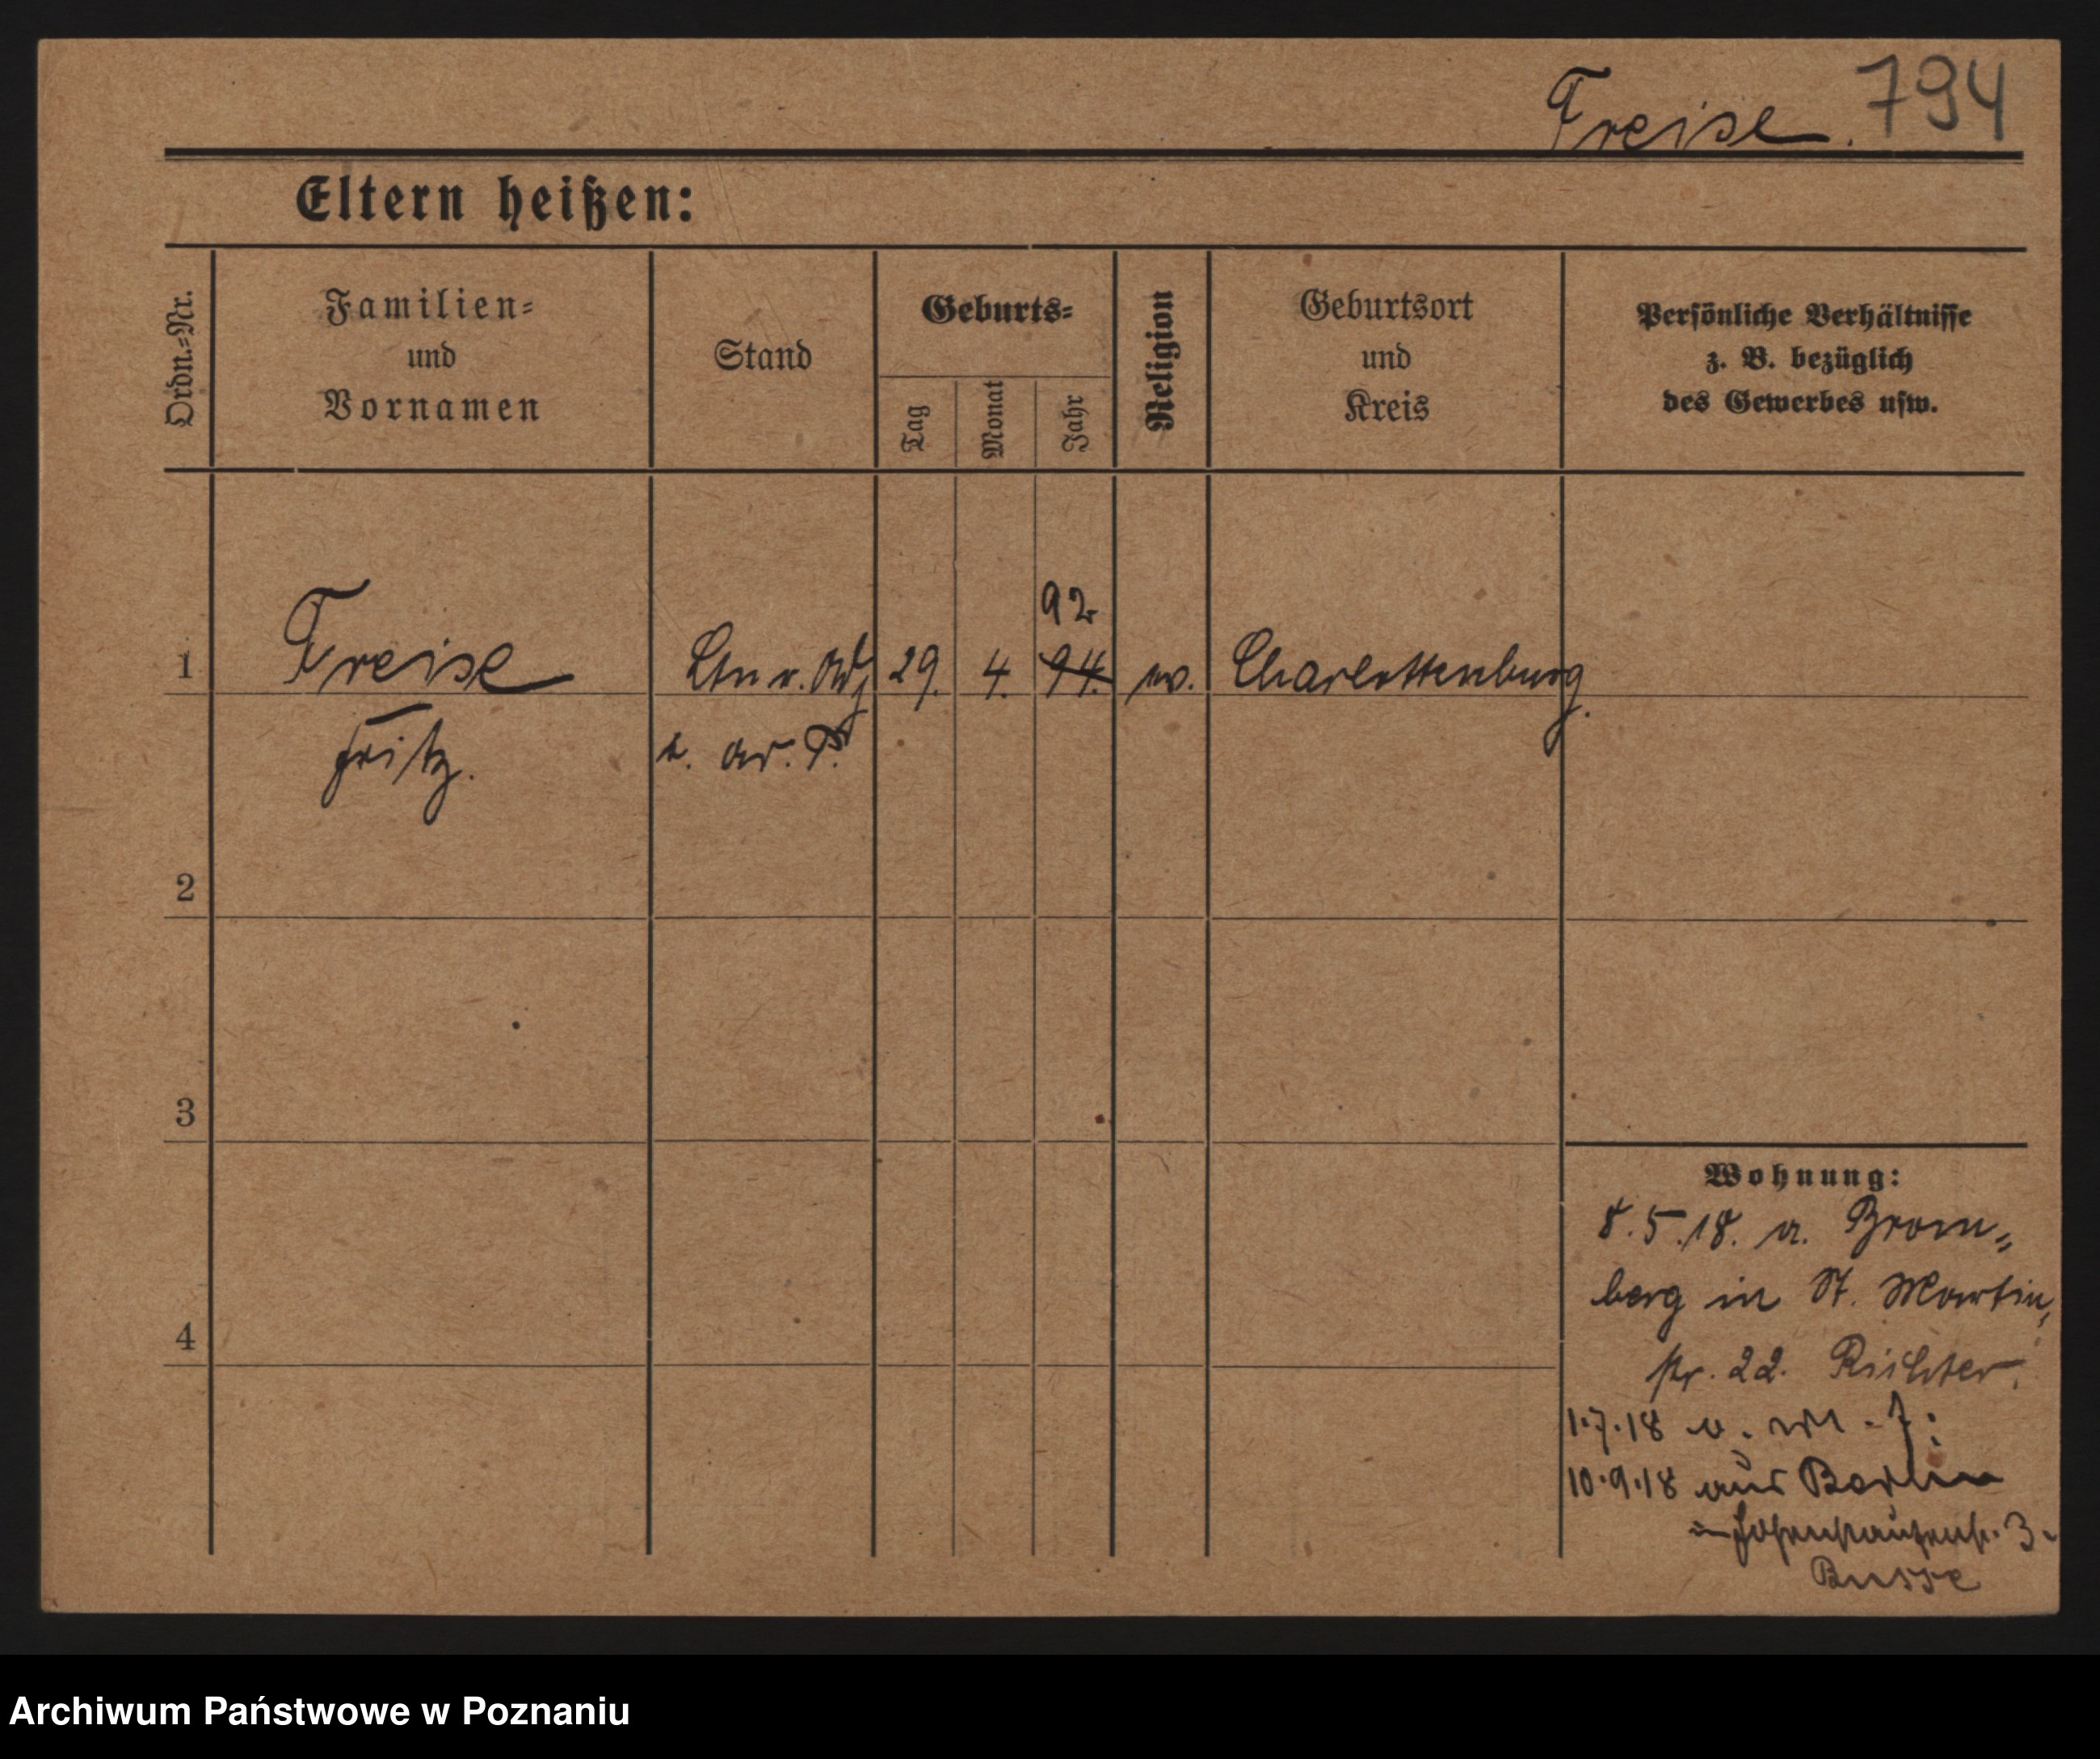 Freise. 794
Eltern heißen:
Ordn.-Nr.
Familien-
und
Vornamen
Stand
Geburts-
Tag
Monat
Jahr
Religion
Geburtsort
und
Kreis
Persönliche Verhältnisse
z. B. bezüglich
des Gewerbes usw.
92
1 Freise Ltn u. Adj 29. 4. 94. ev. Charlottenburg.
Fritz.
2
3
4
Wohnung:
8.5.18. a. Brom-
berg in St. Martin-
str. 22. Richter.
1.7.18
10.9.18 aus Berlin
in Hohenstaufenstr. 3.
Busse
Archiwum Państwowe w Poznaniu